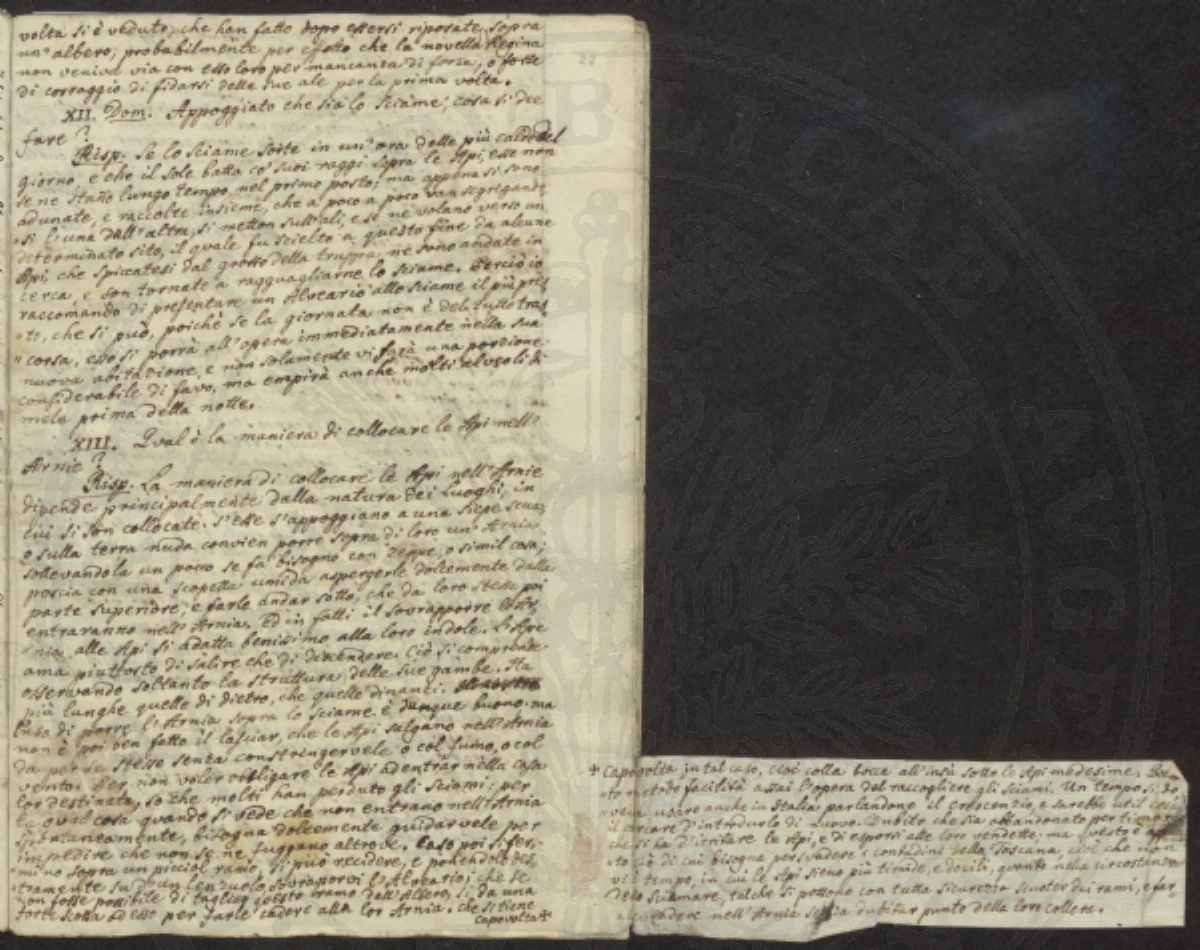 volta si è veduto, che han fatto dopo essersi riposate sopra
un' albero, probabilmente per effetto che la novella Regina
non veniva via con esso loro per mancanza di forza, o forse
di corraggio di fidarsi delle sue ale per la prima volta.
XII. Dom. Appoggiato che sia lo Sciame, cosa si dee
fare?
Risp. Se lo Sciame sorte in un' ora delle più calde del
giorno e che il Sole batta co' suoi raggi sopra le Api, esse non
se ne stano lungo tempo nel primo posto; ma appena si sono
adunate, e raccolte insieme, che a poco a poco van segregando
si l'una dall' altra, si metton sull' ali, e se ne volano verso un
determinato sito, il quale fu scielto a questo fine da alcune
Api, che spiccatesi dal grosso della truppa, ne sono andate in
cerca, e son tornate a ragguagliarne lo Sciame. Perciò io
raccomando di presentare un Alveario allo Sciame il più pres
to, che si può, poichè se la giornata non è del tutto tras
corsa, esso si porrà all' opera immediatamente nella sua
nuova abitazione, e non solamente vi farà una porzione
considerabile di favo, ma empirà anche molti alveoli di
mela prima della notte.
XIII. Qual è la maniera di collocare le Api nell'
Arnie?
Risp. La maniera di collocare le Api nell' Arnie
dipende principalmente dalla natura dei Luoghi, in
cui si son collocate. S'esse s'appoggiano a una Siepe
o sulla terra nuda convien porre sopra di loro un' Arnia
sollevandola un poco se fa bisogno con Zeppe, o simil cosa;
poscia con una scopetta umida aspergerle dolcemente dalla
parte superiore, e farle andar sotto, che da loro stesse poi
entraranno nell' Arnia. Ed in fatti il sovrapporre l'Ar
nia alle Api si adatta benissimo alla loro indole. L'Ape
ama piuttosto di salire che di discendere. Ciò si comprende
osservando soltanto la struttura delle sue gambe. Ha
più lunghe quelle di dietro, che quelle dinanzi.
L'uso di porre l'Arnia sopra lo sciame è dunque buono. ma
non è poi ben fatto il lasciar, che le Api salgano nell' Arnia
da per se stesse senza constringervele o col fumo, o col
vento. Per non voler obbligare le Api ad entrar nella casa
lor destinata, so che molti han perduto gli Sciami: per
la qual cosa quando si vede che non entrano nell' Arnia
spontaneamente, bisogna dolcemente guidarvele per
impedire che non se ne fuggano altrove. Caso poi si fer
mino sopra un picciol ramo, si può recidere, e ponendolo des
tramente su d'un lenzuolo, sovraporvi l'Alveario; che se
non fosse possibile di tagliar questo ramo dall' Albero, si da una
forte scossa ad esso per farle cadere alla lor Arnia. che si tiene
capovolta
+ Capovolta in tal caso, cioè colla bocca all' insù sotto le Api medesime. Que
sto metodo facilita assai l'opera del raccogliere gli sciami. Un tempo si do
veva usare anche in Italia parlandone il Crescenzio, e sarebbe util cosa
il cercare d'introdurlo di nuovo. Dubito che sia abbandonato per timore
che si ha d'irritare le Api, e di esporsi alle loro vendette. ma questo è
ciò di cui bisogna persuadere i contadini della Toscana, cioè che non
vi è tempo, in cui le Api sieno più timide, e docili, quanto nella circostanza
dello Sciamare, talchè si possono con tutta sicurezza scuoter dai rami, e far
cadere nell' Arnia senza dubitar punto della loro collera.